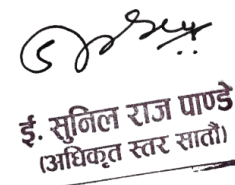 ई. सुनिल राज पाण्डे
(अधिकृत स्तर सातौं)